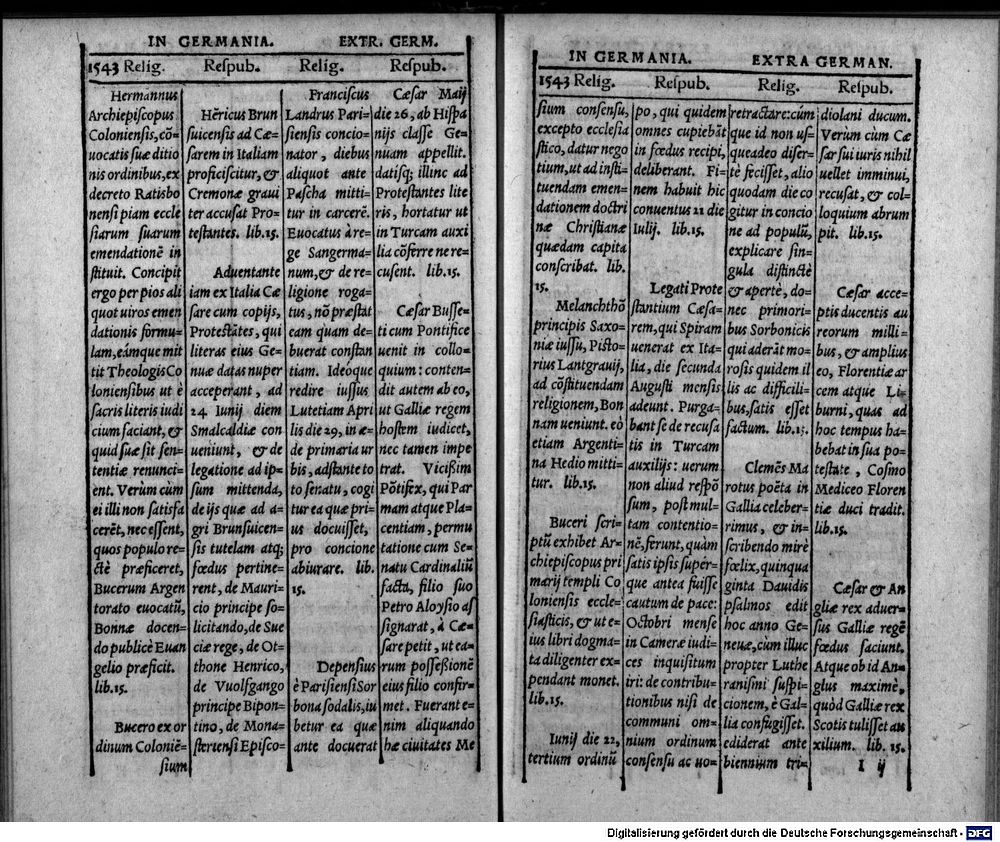 IN GERMANIA. EXTR. GERM.
1543 Relig. Respub. Relig. Respub.
Hermannus
Archiepiscopus
Coloniensis, cõ=
uocatis suæ ditio
nis ordinibus, ex
decreto Ratisbo
nensi piam eccle
siarum suarum
emendationē in
stituit. Concipit
ergo per pios ali
quot uiros emen
dationis formu=
lam, eámque mit
tit Theologis Co
loniensibus ut è
sacris literis iudi
cium faciant, &
quid suæ sit sen=
tentiæ renunci=
ent. Verùm cùm
ei illi non satisfa
cerēt, nec essent,
quos populo re=
ctè præficeret,
Bucerum Argen
torato euocatū,
Bonnæ docen=
do publicè Euan
gelio præficit.
lib. 15.
Bucero ex or
dinum Coloniē=
sium
Hēricus Brun
suicensis ad Cæ=
sarem in Italiam
proficiscitur, &
Cremonæ graui
ter accusat Pro=
testantes. lib. 15.
Aduentante
iam ex Italia Cæ
sare cum copijs,
Protestātes, qui
literas eius Ge=
nuæ datas nuper
acceperant, ad
24 Iunij diem
Smalcaldiæ con
ueniunt, & de
legatione ad ip=
sum mittenda,
de ijs quæ ad a=
gri Brunsuicen=
sis tutelam atq;
fœdus pertine=
rent, de Mauri=
cio principe so=
licitando, de Sue
ciæ rege, de Ot=
thone Henrico,
de Vuolfgango
principe Bipon=
tino, de Mona=
steriensi Episco=
Franciscus
Landrus Pari=
siensis concio=
nator, diebus
aliquot ante
Pascha mitti=
tur in carcerē.
Euocatus à re=
ge Sangerma=
num, & de re=
ligione roga=
tus, nō præstat
eam quam de=
buerat constan
tiam. Ideóque
redire iussus
Lutetiam Apri
lis die 29, in æ=
de primaria ur
bis, adstante to
to senatu, cogi
tur ea quæ pri=
us docuisset,
pro concione
abiurare. lib.
15.
Depensius
è Parisiensi Sor
bona sodalis, iu
betur ea quæ
ante docuerat
Cæsar Maij
die 26, ab Hispa
nijs classe Ge=
nuam appellit.
datisq; illinc ad
Protestantes lite
ris, hortatur ut
in Turcam auxi
lia cōferre ne re=
cusent. lib. 15.
Cæsar Busse=
ti cum Pontifice
uenit in collo=
quium: conten=
dit autem ab eo,
ut Galliæ regem
hostem iudicet,
nec tamen impe
trat. Vicißim
Pōtifex, qui Par
mam atque Pla=
centiam, permu
tatione cum Se=
natu Cardinaliū
facta, filio suo
Petro Aloysio as
signarat, à Cæ=
sare petit, ut ea=
rum possessionē
eius filio confir=
met. Fuerant e=
nim aliquando
hæ ciuitates Me
IN GERMANIA. EXTRA GERMAN.
1543 Relig. Respub. Relig. Respub.
sium consensu,
excepto ecclesia
stico, datur nego
tium, ut ad insti=
tuendam emen=
dationem doctri
næ Christianæ
quædam capita
conscribat. lib.
15.
Melanchthō
principis Saxo=
niæ iussu, Pisto=
rius Lantgrauij,
ad cōstituendam
religionem, Bon
nam ueniunt. eò
etiam Argenti=
na Hedio mitti=
tur. lib. 15.
Buceri scri=
ptū exhibet Ar=
chiepiscopus pri
marij templi Co
loniensis eccle=
siasticis, & ut e=
ius libri dogma=
ta diligenter ex=
pendant monet.
lib. 15.
Iunij die 22,
tertium ordinū
po, qui quidem
omnes cupiebāt
in fœdus recipi,
deliberant. Fi=
nem habuit hic
conuentus 21 die
Iulij. lib. 15.
Legati Prote
stantium Cæsa=
rem, qui Spiram
uenerat ex Ita=
lia, die secunda
Augusti mensis
adeunt. Purga=
bant se de recusa
tis in Turcam
auxilijs: uerum
non aliud respō
sum, post mul=
tam contentio=
nē, ferunt, quàm
satis ipsis super=
que antea fuisse
cautum de pace:
Octobri mense
in Cameræ iudi=
ces inquisitum
iri: de contribu=
tionibus nisi de
communi om=
nium ordinum
consensu ac uo=
retractare: cùm
que id non us=
queadeo diser=
tè fecisset, alio
quodam die co
gitur in concio
ne ad populū,
explicare sin=
gula distinctè
& apertè, do=
nec primori=
bus Sorbonicis
qui aderāt mo=
rosis quidem il
lis ac difficili=
bus, satis esset
factum. lib. 15.
Clemēs Ma
rotus poëta in
Gallia celeber=
rimus, & in=
scribendo mirè
fœlix, quinqua
ginta Dauidis
psalmos edit
hoc anno Ge=
neuæ, cùm illuc
propter Luthe
ranismi suspi=
cionem, è Gal=
lia confugisset.
ediderat ante
biennium tri=
diolani ducum.
Verùm cùm Cæ
sar sui iuris nihil
uellet imminui,
recusat, & col=
loquium abrum
pit. lib. 15.
Cæsar acce=
ptis ducentis au
reorum milli=
bus, & amplius
eo, Florentiæ ar
cem atque Li=
burni, quas ad
hoc tempus ha=
bebat in sua po=
testate, Cosmo
Mediceo Floren
tiæ duci tradit.
lib. 15.
Cæsar & An
gliæ rex aduer=
sus Galliæ regē
fœdus faciunt.
Atque ob id An=
glus maximè,
quòd Galliæ rex
Scotis tulisset au
xilium. lib. 15.
I ij
Digitalisierung gefördert durch die Deutsche Forschungsgemeinschaft - DFG